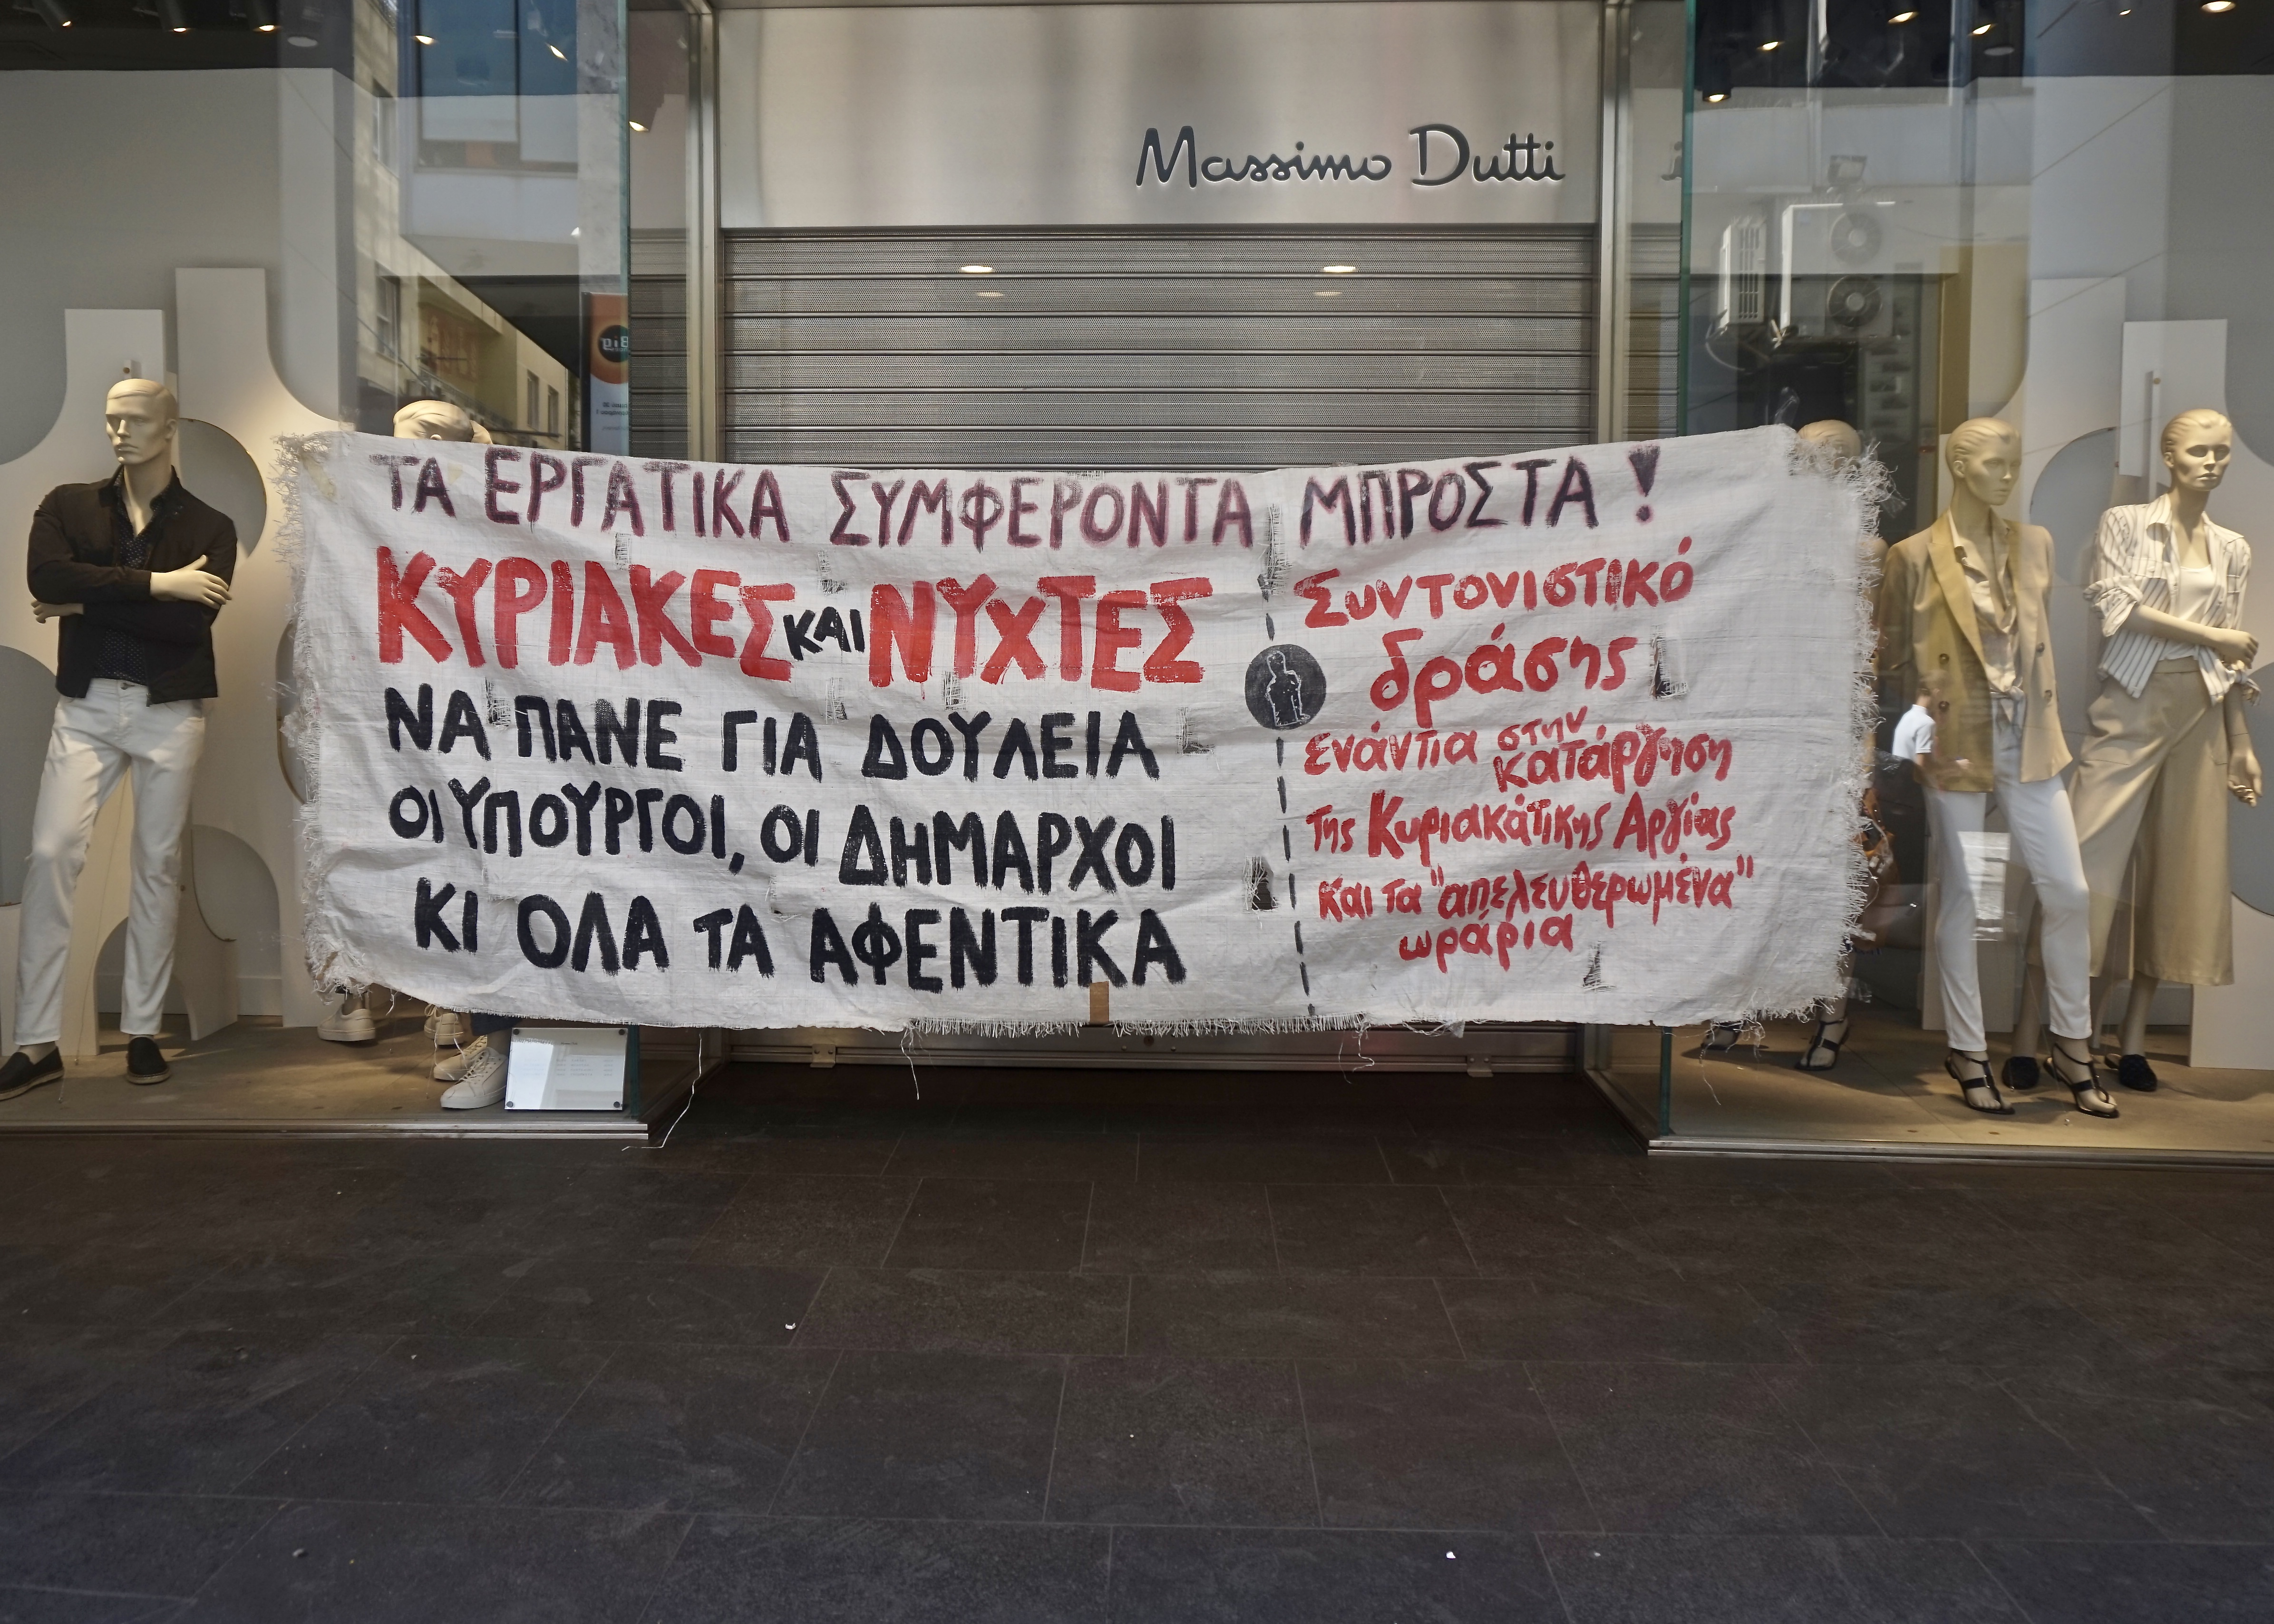 Massimo Dutti
ΤΑ ΕΡΓΑΤΙΚΑ ΣΥΜΦΕΡΟΝΤΑ ΜΠΡΟΣΤΑ!
ΚΥΡΙΑΚΕΣ ΚΑΙ ΝΥΧΤΕΣ
ΝΑ ΠΑΝΕ ΓΙΑ ΔΟΥΛΕΙΑ
ΟΙ ΥΠΟΥΡΓΟΙ, ΟΙ ΔΗΜΑΡΧΟΙ
ΚΙ ΟΛΑ ΤΑ ΑΦΕΝΤΙΚΑ
Συντονιστικό
δράσης
ενάντια στην
κατάργηση
της Κυριακάτικης Αργίας
και τα "απελευθερωμένα"
ωράρια